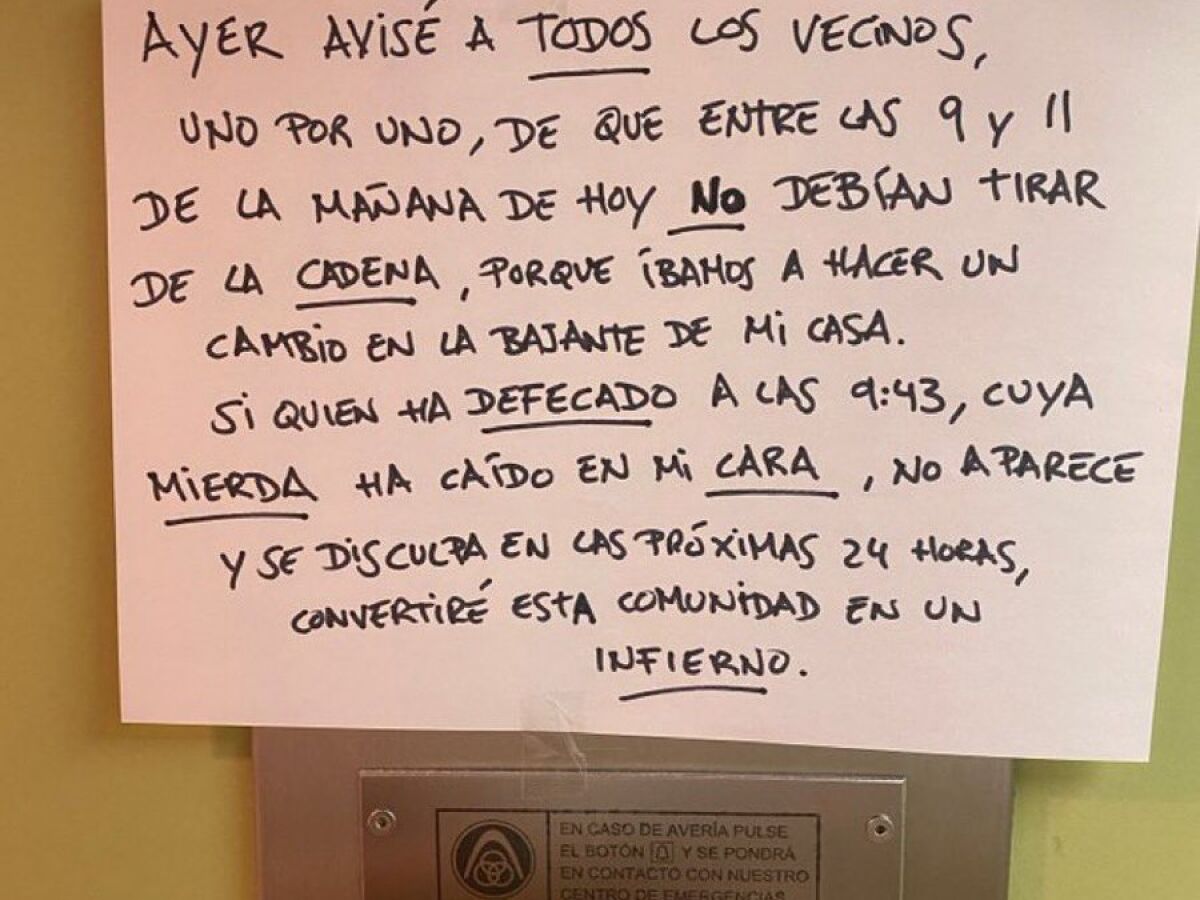 AYER AVISÉ A TODOS LOS VECINOS,
UNO POR UNO, DE QUE ENTRE LAS 9 Y 11
DE LA MAÑANA DE HOY NO DEBÍAN TIRAR
DE LA CADENA, PORQUE ÍBAMOS A HACER UN
CAMBIO EN LA BAJANTE DE MI CASA.
SI QUIEN HA DEFECADO A LAS 9:43, CUYA
MIERDA HA CAÍDO EN MI CARA, NO APARECE
Y SE DISCULPA EN LAS PRÓXIMAS 24 HORAS,
CONVERTIRÉ ESTA COMUNIDAD EN UN
INFIERNO.
EN CASO DE AVERÍA PULSE
EL BOTÓN Y SE PONDRÁ
EN CONTACTO CON NUESTRO
CENTRO DE EMERGENCIAS